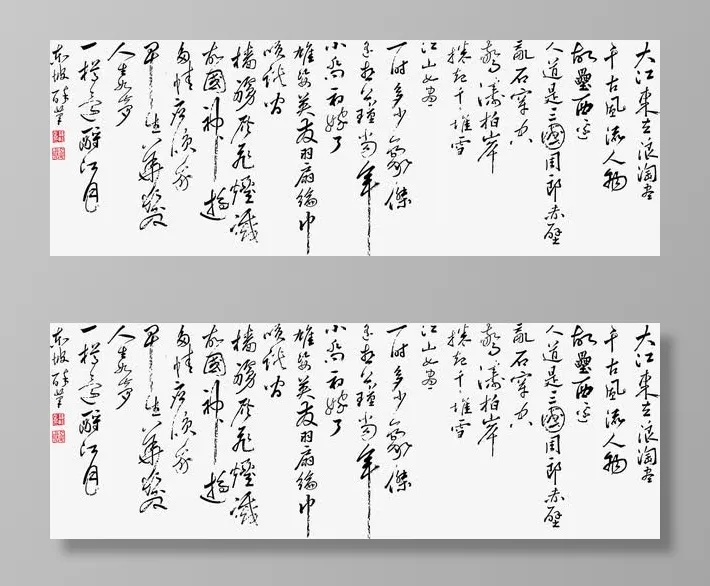 大江東去浪淘盡
千古風流人物
故壘西邊
人道是三國周郎赤壁
亂石穿空
驚濤拍岸
捲起千堆雪
江山如畫
一時多少豪傑
遙想公瑾當年
小喬初嫁了
雄姿英發羽扇綸巾
談笑間
檣艣灰飛煙滅
故國神遊
多情應笑我
早生華髮
人如夢
一樽還酹江月
東坡醉筆
大江東去浪淘盡
千古風流人物
故壘西邊
人道是三國周郎赤壁
亂石穿空
驚濤拍岸
捲起千堆雪
江山如畫
一時多少豪傑
遙想公瑾當年
小喬初嫁了
雄姿英發羽扇綸巾
談笑間
檣艣灰飛煙滅
故國神遊
多情應笑我
早生華髮
人如夢
一樽還酹江月
東坡醉筆